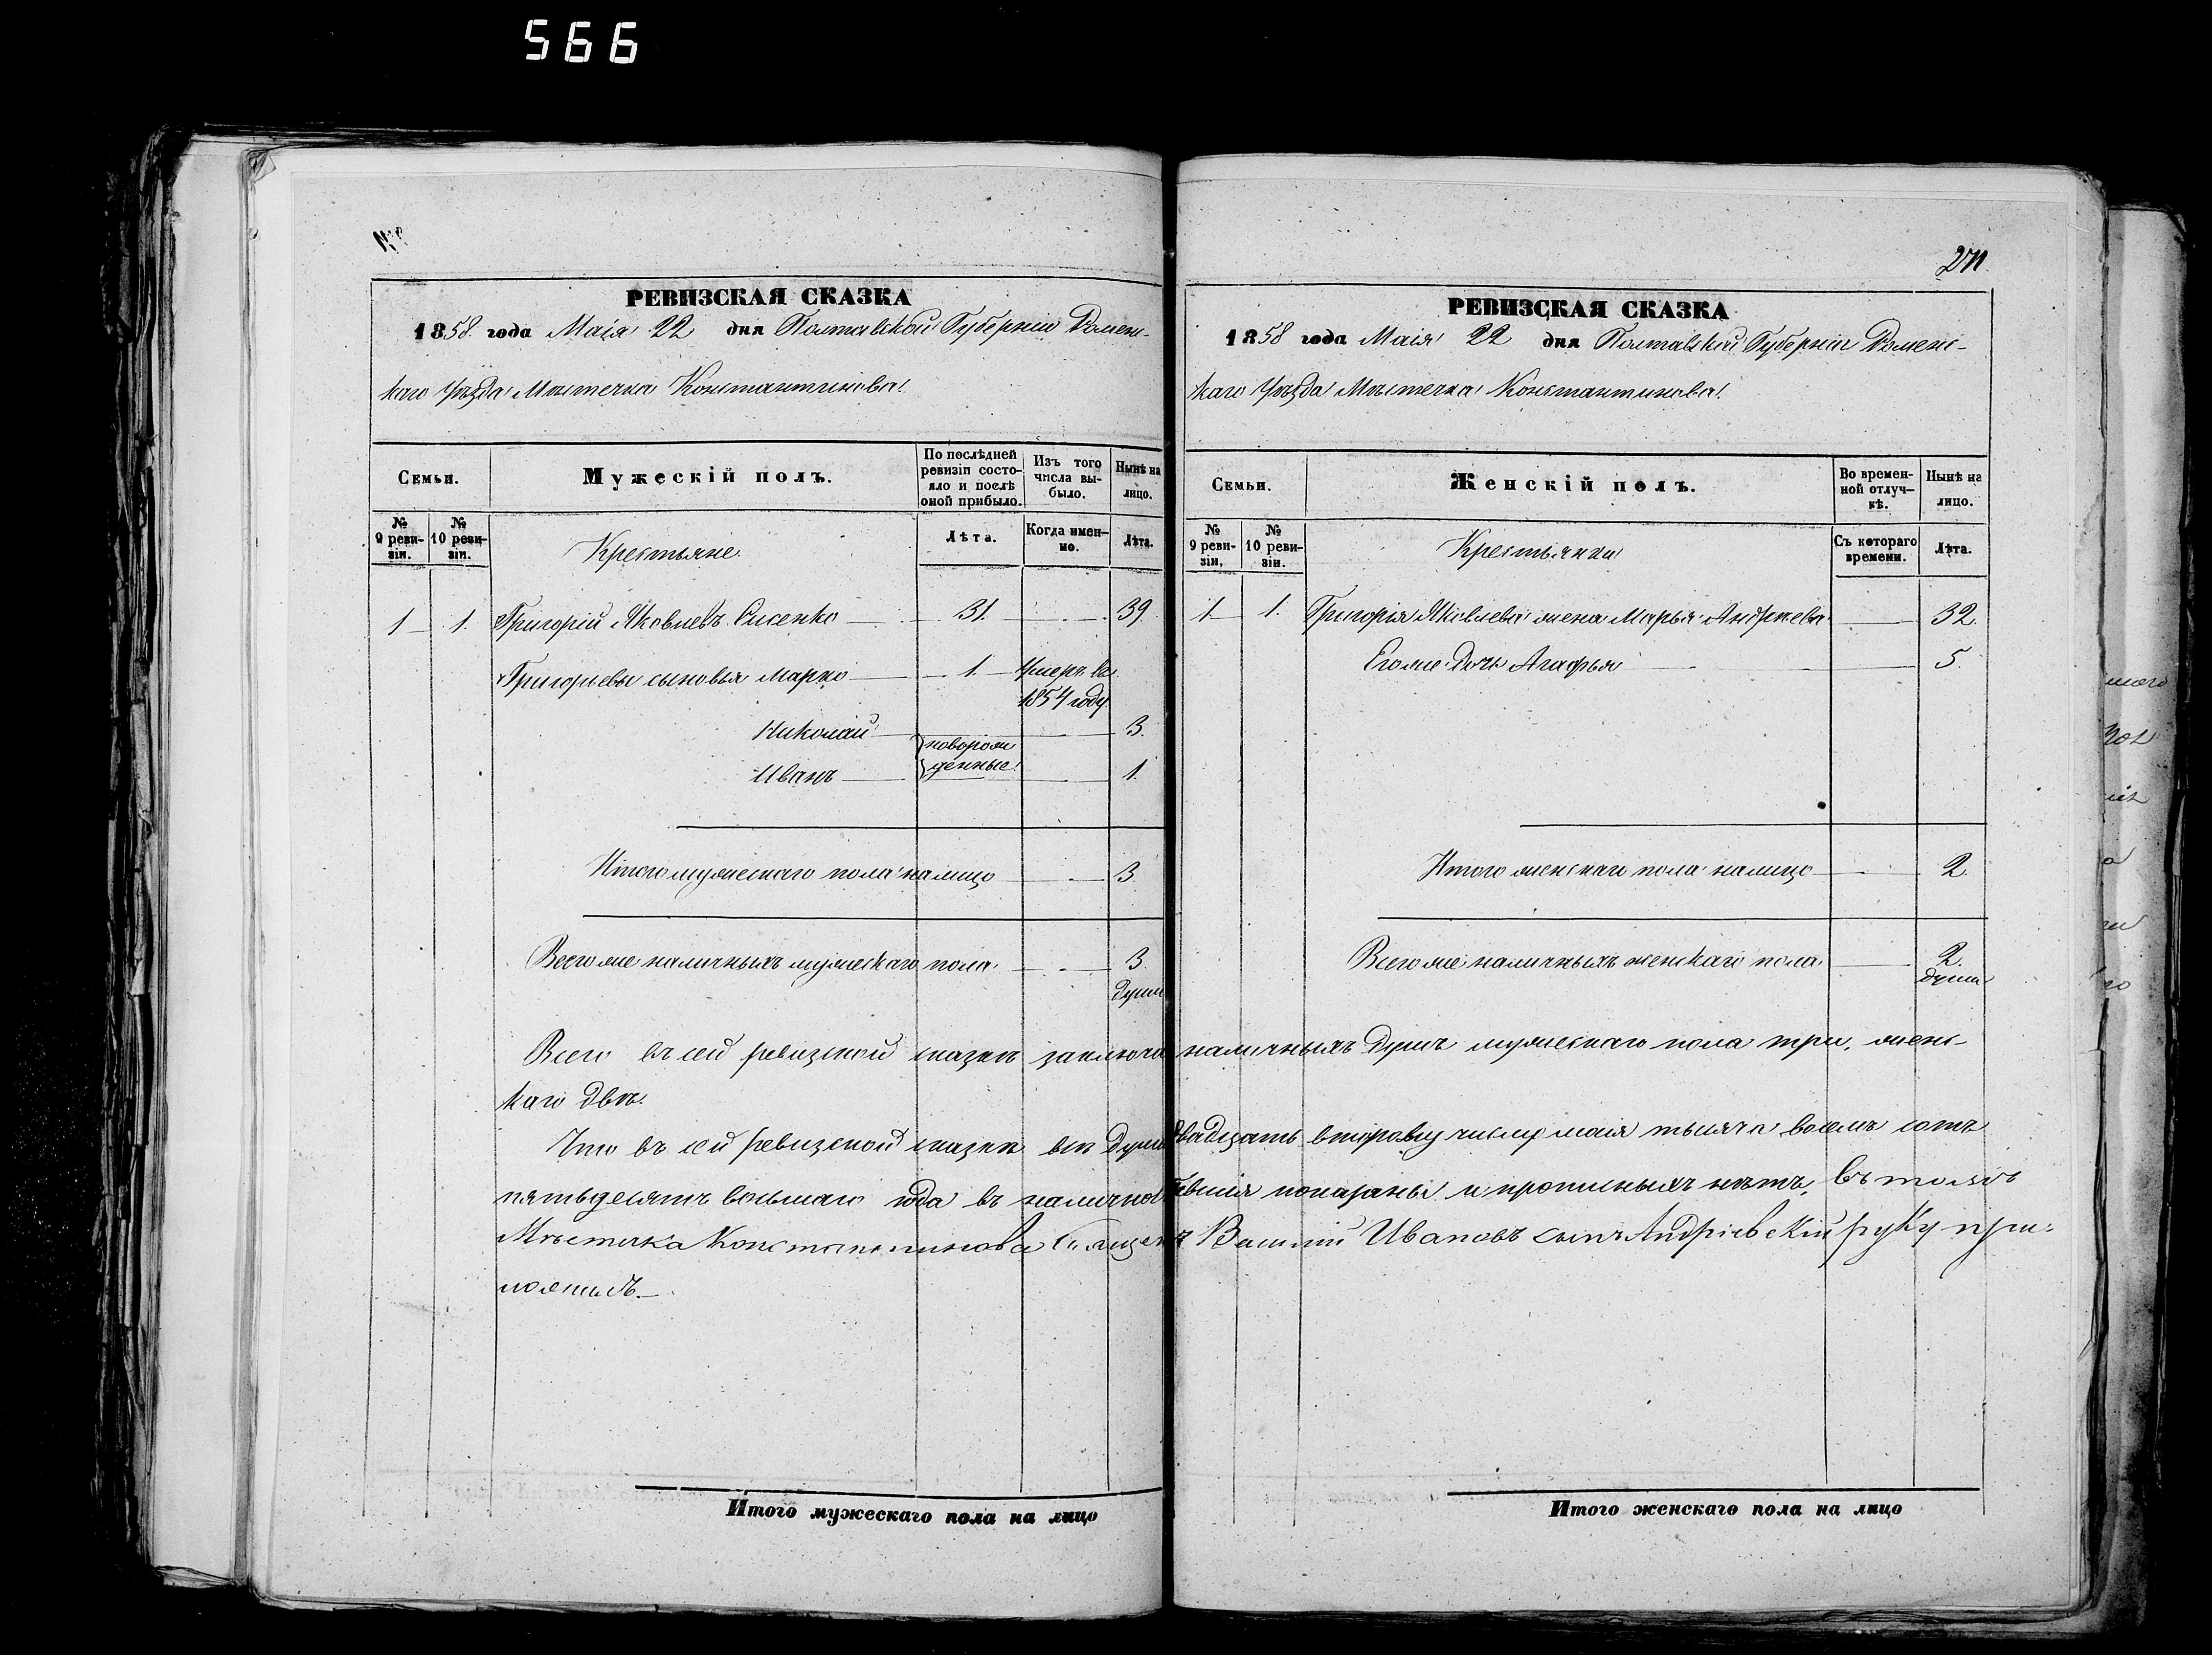 566
№
РЕВИЗСКАЯ СКАЗКА
1858. года Маія 22 дня Полтавской Губерніи Ромен-
каго Уѣзда Мѣстечка Константинова
Семьи.
Мужескій полъ.
По послѣдней ревизіи состо-
яло и послѣ
оной прибыло.
Изъ того
числа вы-
было.
Нынѣ на
лицо.
№
9 реви-
зіи.
№
10 реви-
зіи.
Крестьяне.
Лѣта.
Когда имен-
но.
Лѣта.
1 1. Григорій Яковлевъ Сисенко 31. 39
Григорьевы сыновья Марко 1. Умеръ въ
1854 году
Николай новорож 3.
Иванъ денные 1.
Итого мужескаго пола налицо 3.
Всего же наличныхъ мужескаго пола 3.
души
271.
РЕВИЗСКАЯ СКАЗКА
1858 года Маія 22 дня Полтавской Губерніи Роменс-
каго Уѣзда Мѣстечка Константинова
Семьи.
Женскій полъ.
Во времен-
ной отлуч-
кѣ.
Нынѣ на
лицо.
№
9 реви-
зіи.
№
10 реви-
зіи.
Крестьянки
Съ котораго
времени.
Лѣта.
1 1. Григорія Яковлева жена Марья Андреева 32.
Его же дочь Агафья 5.
Итого женскаго пола налицо 2.
Всего же наличныхъ женскаго пола 2.
души
Всего въ сей ревизской сказкѣ заключа наличныхъ душъ мужескаго пола три, женс-
каго двѣ.
Что въ сей ревизской сказкѣ всѣ души двадцать второму числу маія тысяча восемь сотъ
пятьдесятъ восьмаго года въ налично показаны и прописныхъ нѣтъ, въ томъ
Мѣстечка Константинова Ивановъ сынъ Андріевскій руку при-
ложилъ.
Итого мужескаго пола на лицо
Итого женскаго пола на лицо